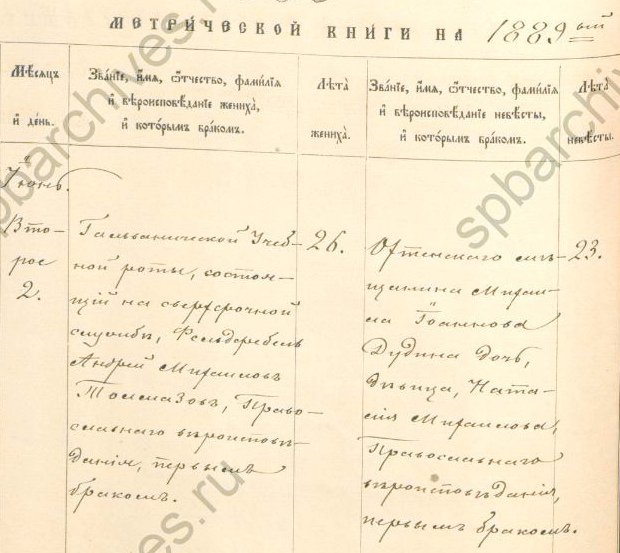 МЕТРИЧЕСКОЙ КНИГИ НА 1889ый
Мѣсяцъ
и день.
Званіе, имя, отчество, фамилія
и вѣроисповѣданіе жениха,
и которымъ бракомъ.
Лѣта
жениха.
Званіе, имя, отчество, фамилія
и вѣроисповѣданіе невѣсты,
и которымъ бракомъ.
Лѣта
невѣсты.
Іюнь.
Вто-
рое
2.
Гальванической Учеб-
ной роты, состоя-
щій на сверхсрочной
службѣ, Фельдфебель
Андрей Михаиловъ
Толмазовъ, Право-
славнаго вѣроисповѣ-
данія, первымъ
бракомъ.
26.
мѣ-
щанина Михаи-
ла Іоаннова
Дудина дочь,
дѣвица, Ната-
лія Михаилова,
Православнаго
вѣроисповѣданія,
первымъ бракомъ.
23.
spbarchives.ru
spbarchives.ru